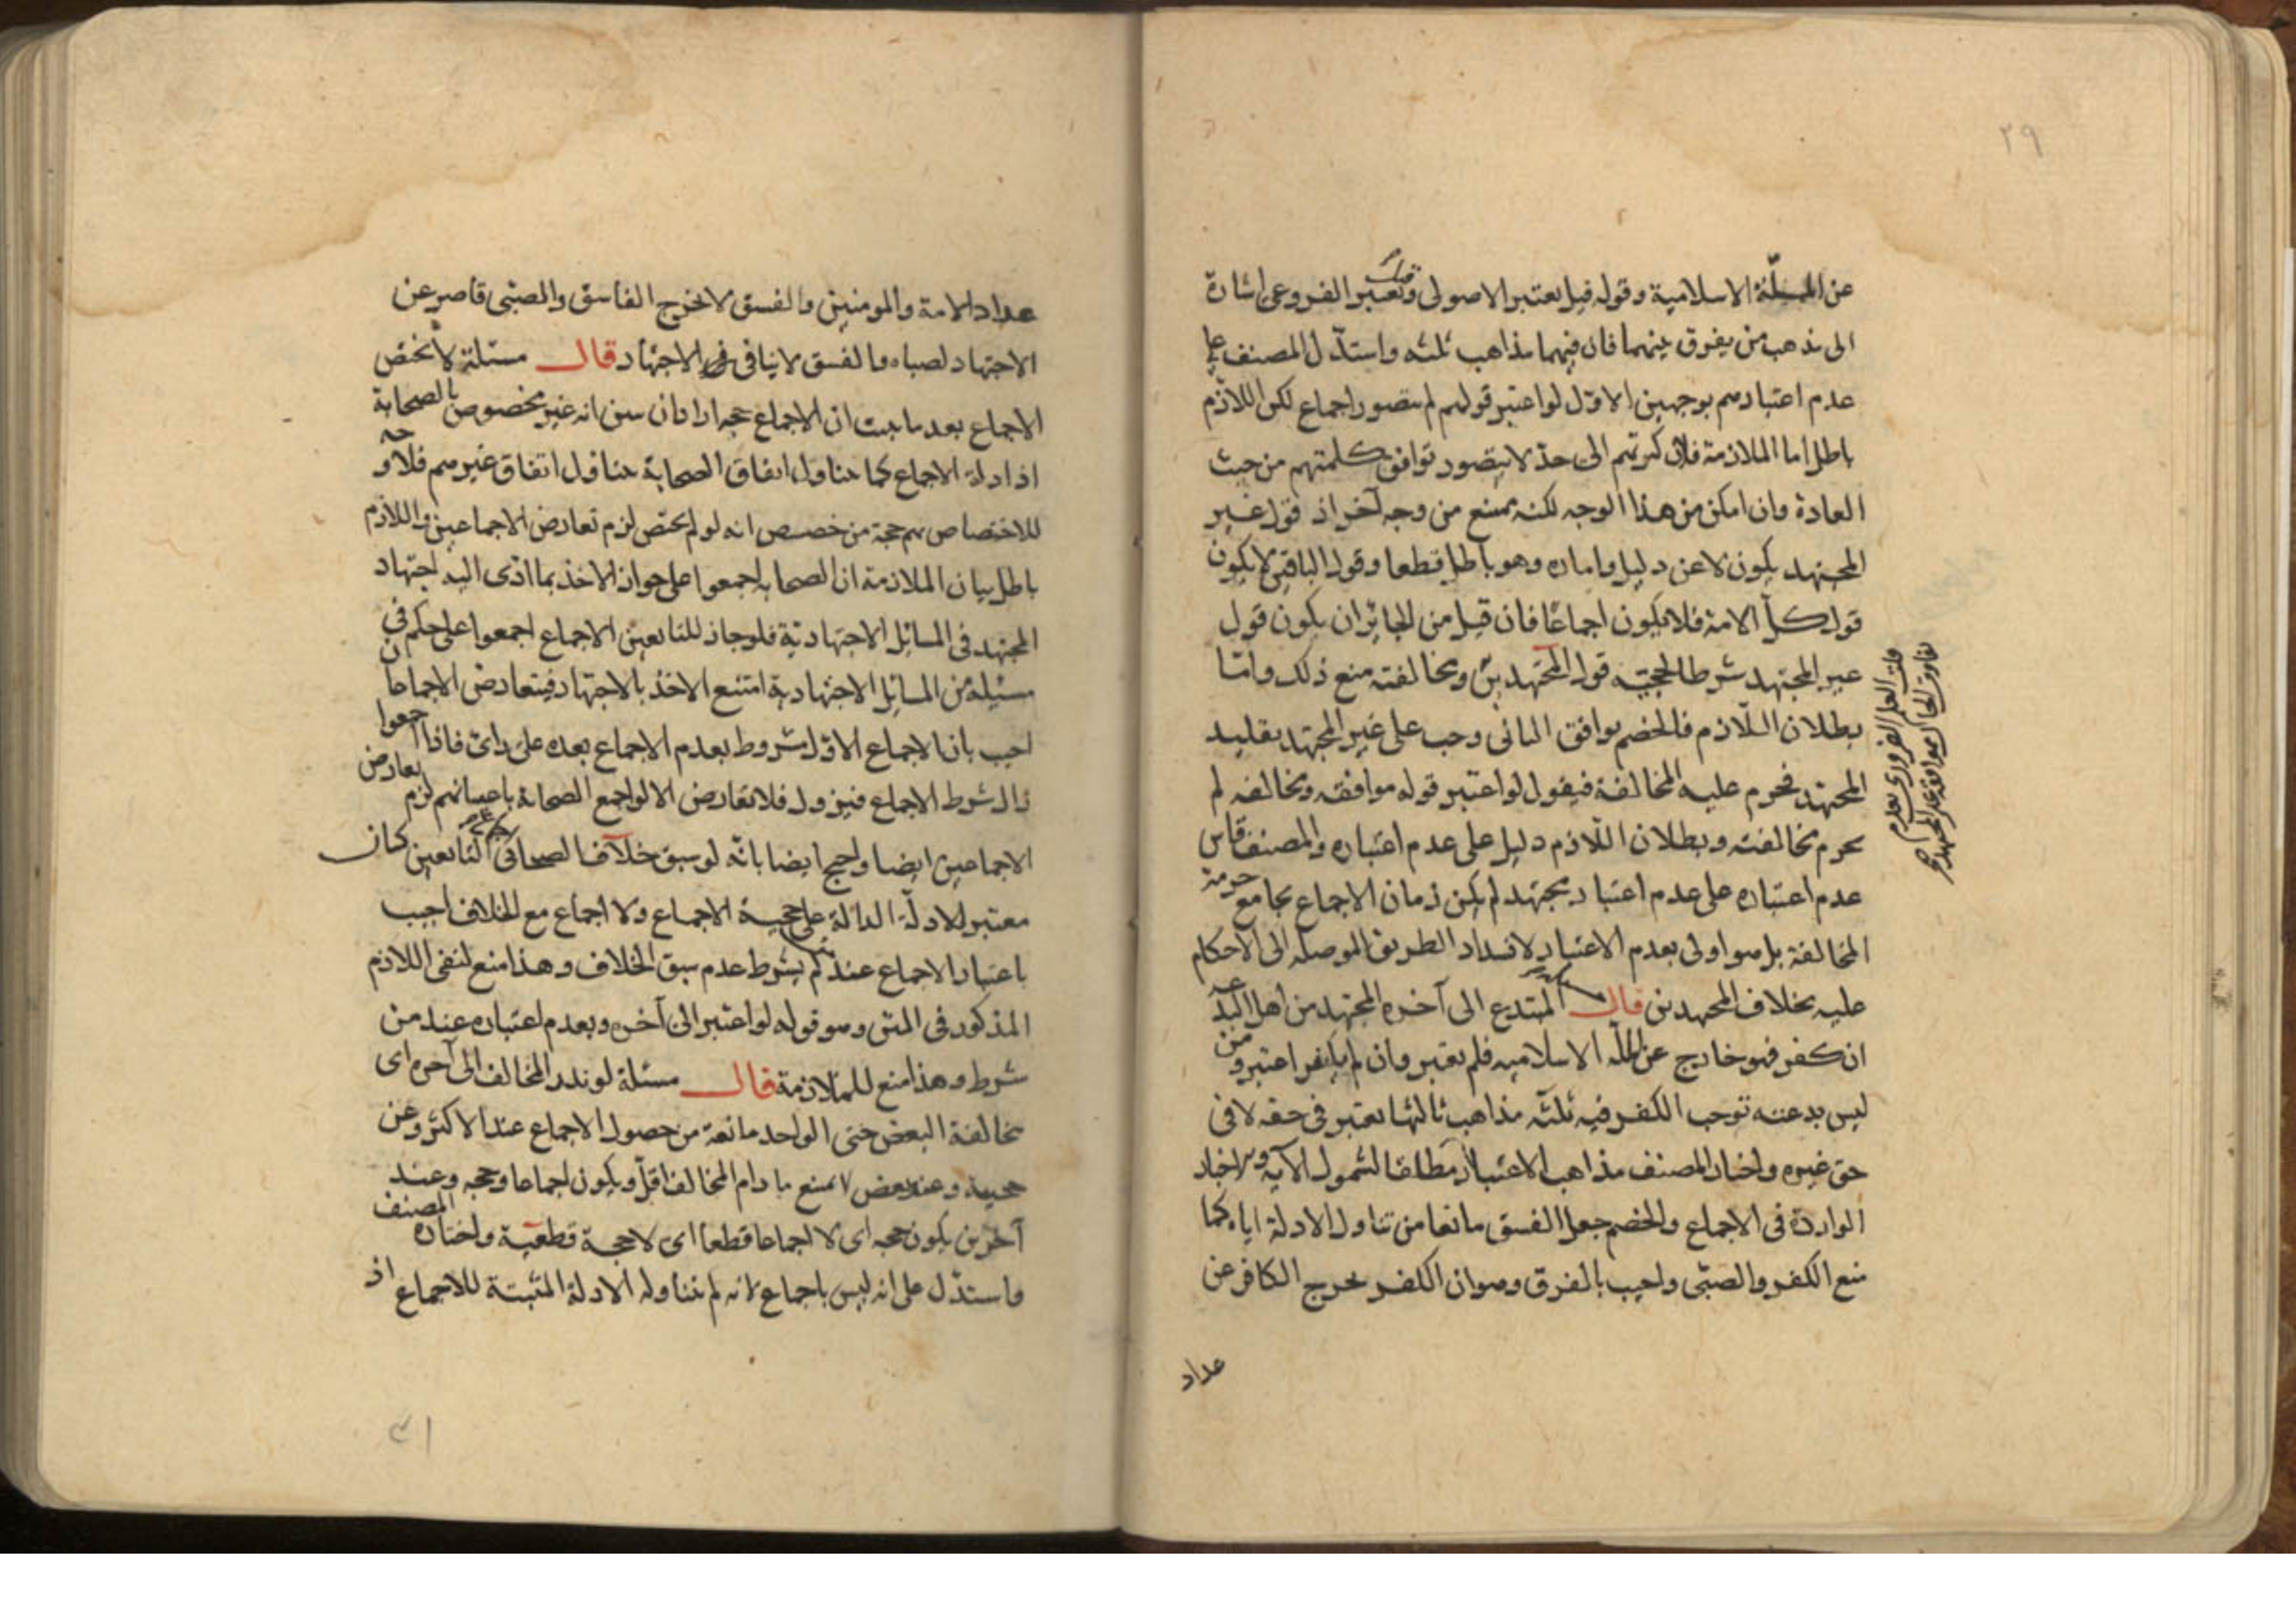 ٢٩
عن الملة الاسلامية وقوله قيل يعتبر الاصولى وقيل يعتبر الفروعى اشارة
الى مذهب من يفرق بينهما فان فيهما مذاهب ثلثه واستدل المصنف على
عدم اعتبارهم بوجهين الاول لو اعتبر قولهم لم يتصور اجماع لكن اللازم
باطل اما الملازمة فلان كثرتهم الى حد لا يتصور توافق كلمتهم من حيث
العادة وان امكن من هذا الوجه لكنه يمتنع من وجه آخر اذ قول غير
المجتهد يكون لا عن دليل وامارة وهو باطل قطعا وقول الباقين لا يكون
قول كل الامة فلا يكون اجماعا فان قيل من الجائز ان يكون قول
غير المجتهد شرطا لحجية قول المجتهدين ومخالفته منع ذلك واما
بطلان اللازم فالخصم يوافق الثانى وجب على غير المجتهد تقليد
المجتهد فحرم عليه المخالفة فيقول لو اعتبر قوله موافقه ومخالفه لم
يحرم مخالفته وبطلان اللازم دليل على عدم اعتباره والمصنف قاس
عدم اعتباره على عدم اعتبار مجتهد لم يكن زمان الاجماع بجامع حرمة
المخالفة بل هو اولى بعدم الاعتبار لانسداد الطريق الموصله الى الاحكام
عليه بخلاف المجتهدين قال المبتدع الى آخره المجتهد من اهل البدعة
ان كفر فهو خارج عن الملة الاسلاميه فلم يعتبر وان لم يكفر اعتبر ومن
ليس بدعته توجب الكفر فيه ثلثه مذاهب ثالثها يعتبر فى حقه لا فى
حق غيره واختار المصنف مذاهب الاعتبار مطلقا لشمول الآية والاخبار
الواردة فى الاجماع والخصم جعل الفسق مانعا من تناول الادلة اياه كما
منع الكفر والصبى واجيب بالفرق وهو ان الكفر يخرج الكافر عن
عداد
عداد الامة والمومنين والفسق لا يخرج الفاسق والصبى قاصر عن
الاجتهاد لصباه والفسق لا ينافى الاجتهاد قال مسئلة لا يختص
الاجماع بعد ما ثبت ان الاجماع حجه اراد ان يبين انه غير مخصوص بالصحابة
اذ ادلة الاجماع كما يتناول اتفاق الصحابة يتناول اتفاق غيرهم فلا وجه
للاختصاص بهم حجة من خصص انه لو لم يختص لزم تعارض الاجماعين واللازم
باطل بيان الملازمة ان الصحابه اجمعوا على جواز الاخذ بما ادى اليه اجتهاد
المجتهد فى المسائل الاجتهادية فلو جاز للتابعين الاجماع اجمعوا على حكم فى
مسئيلة من المسائل الاجتهادية امتنع الاخذ بالاجتهاد فيتعارض الاجماعان
اجيب بان الاجماع الاول مشروط بعدم الاجماع بعده على راى فاذا اجمعوا
زال شرط الاجماع فيزول فلا تعارض الا لو اجمع الصحابة باعيانهم لزم تعارض
الاجماعين ايضا واحتج ايضا بانه لو سبق خلاف الصحابى التابعين كان
معتبر للادلة الدالة على حجية الاجماع ولا اجماع مع الخلاف اجيب
باعتبار الاجماع عند من لم يشرط عدم سبق الخلاف وهذا منع لنفى اللازم
المذكور فى المتن وهو قوله لو اعتبر الى آخره وبعدم اعتباره عند من
شرط وهذا منع للملازمة قال مسئلة لو ندر المخالف الى آخره اى
مخالفة البعض حتى الواحد مانعة من حصول الاجماع عند الاكثر وعن
حجيته وعند بعض لا يمنع ما دام المخالف اقل ويكون اجماعا وحجه وعند
آخرين يكون حجه اى لا اجماعا قطعا اى لا حجة قطعية واختاره المصنف
واستدل على انه ليس باجماع لانه لم يتناوله الادلة المثبتة للاجماع اذ